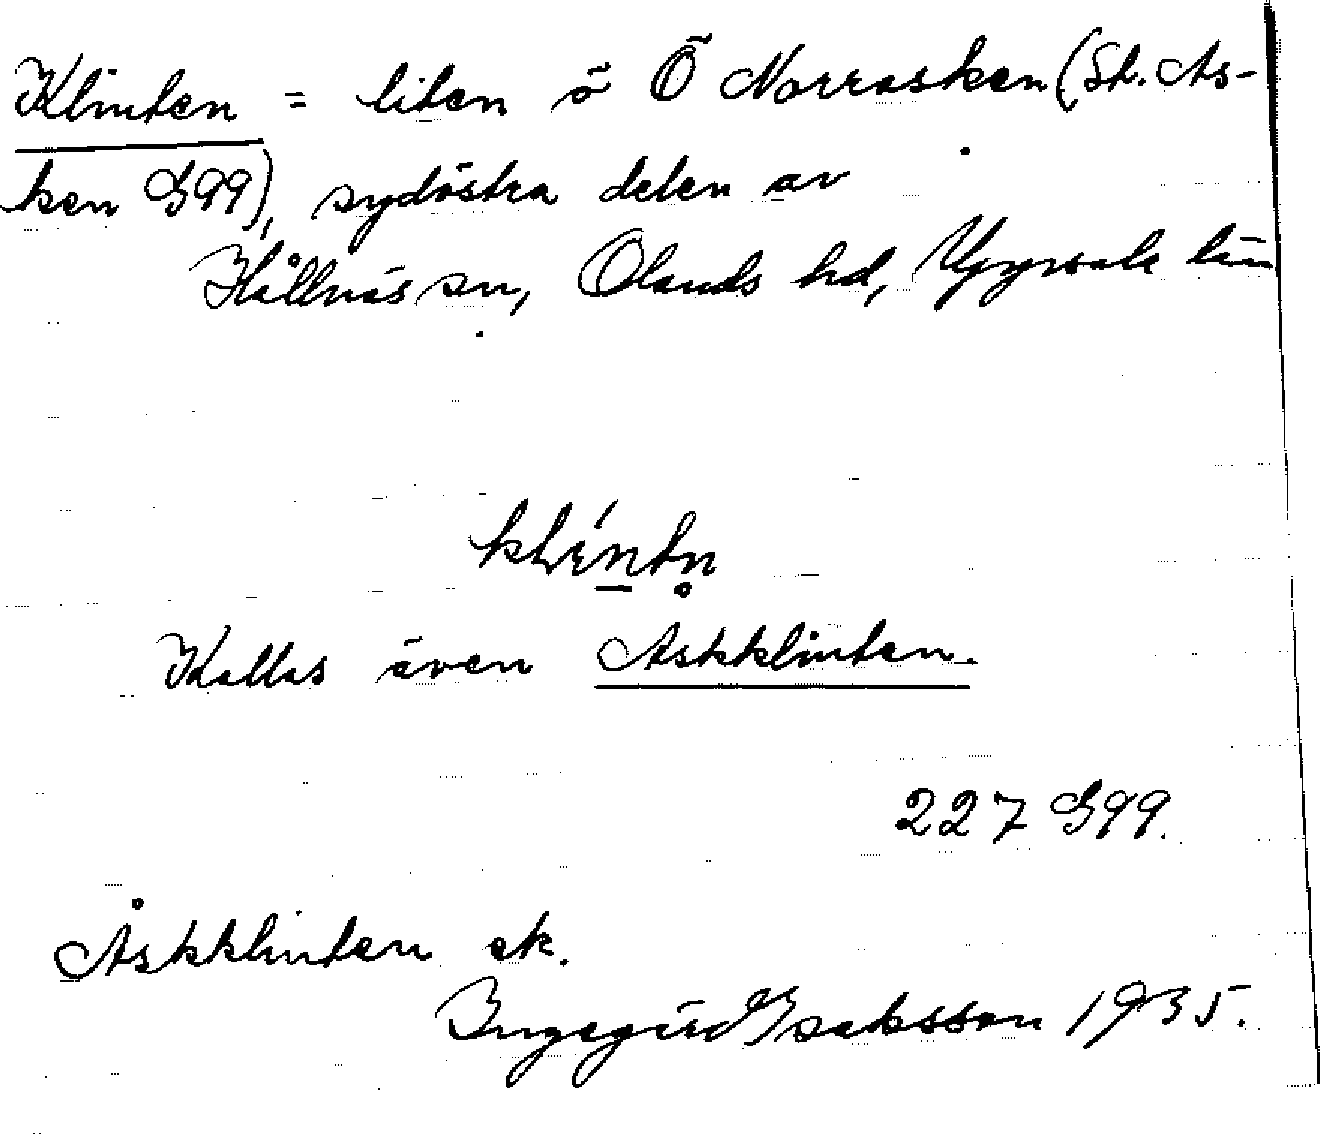 Klinten = liten ö Ö Norrasken (St. As-
ken G99), sydöstra delen av
Hållnäs sn, Olands hd, Uppsala län
Kallas även Askklinten.
227 G99.
Åskklinten ek.
Ingegärd Isaksson 1935.